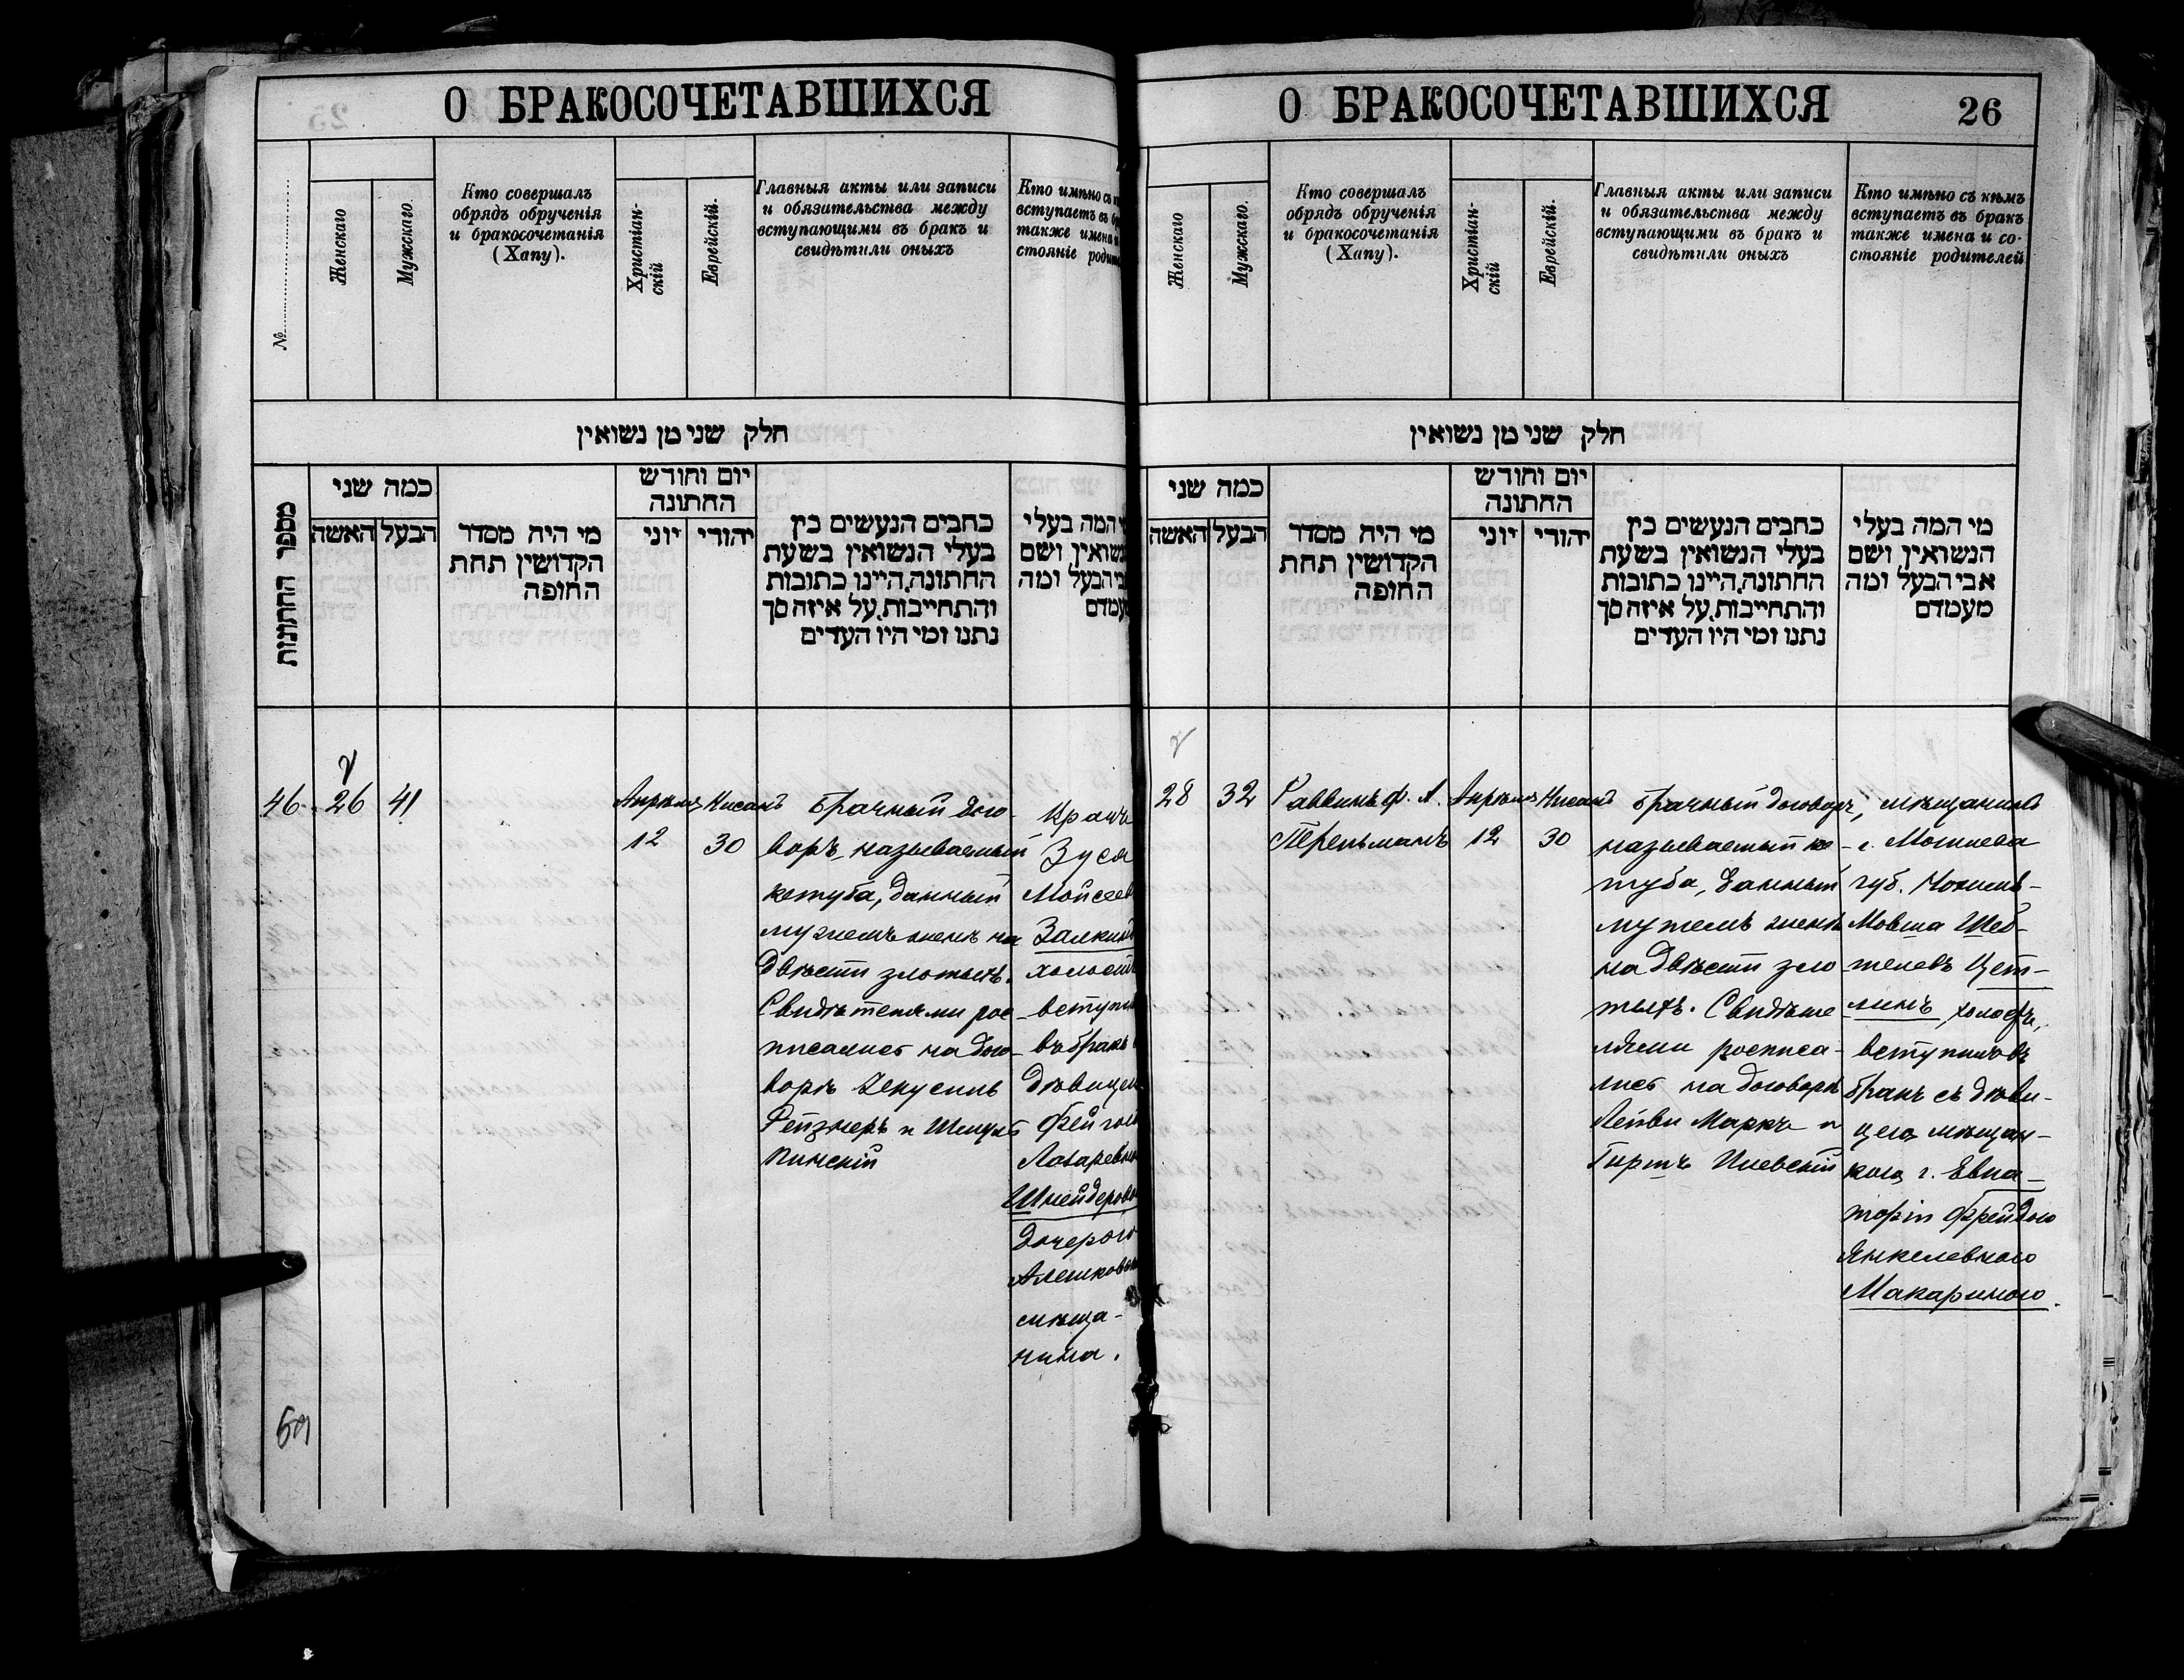 О БРАКОСОЧЕТАВШИХСЯ
№
Женскаго
Мужскаго
Кто совершалъ
обрядъ обрученія
и бракосочетанія
(Хапу).
Христіан-
скій
Еврейскій.
Главныя акты или записи
и обязательства между
вступающими въ бракъ и
свидѣтили оныхъ
Кто имѣно съ
вступаетъ въ
также имена
стояніе
חלק שני מן נשואין
מספר החתונות
כמה שני
האשה
הבעל
מי היה מסדר
הקדושין תחת
החופה
יום וחודש
החתונה
יוני
יהודי
כתבים הנעשים בין
בעלי הנשואין בשעת
החתונה, היינו כתובות
והתחייבות, על איזה סך
נתנו ומי היו העדים
המה בעלי
ושם
הבעל ומה
46
26
41
Апрѣля
12
Нисанъ
30
Брачный дого-
воръ, называемый
кетуба, данный
мужемъ женѣ на
двѣсти злотыхъ.
Свидѣтелями рос-
писались на дого-
ворѣ
и
Пинскій
Зуся
Мойсеев
вступил
въ бракъ
дѣвицею
Лазаревн
Шнейдеров
дочерью
мѣща-
нина.
О БРАКОСОЧЕТАВШИХСЯ
26
Женскаго
Мужскаго.
Кто совершалъ
обрядъ обрученія
и бракосочетанія
(Хапу).
Христіан-
скій
Еврейскій.
Главныя акты или записи
и обязательства между
вступающими въ бракъ и
свидѣтили оныхъ
Кто имѣно съ кѣмъ
вступаетъ въ бракъ
также имена и со-
стояніе родителей
חלק שני מן נשואין
כמה שני
האשה
הבעל
מי היה מסדר
הקדושין תחת
החופה
יום וחודש
החתונה
יוני
יהודי
כתבים הנעשים בין
בעלי הנשואין בשעת
החתונה, היינו כתובות
והתחייבות, על איזה סך
נתנו ומי היו העדים
מי המה בעלי
הנשואין ושם
אבי הבעל ומה
מעמדם
28
32
Раввинъ Ф. А.
Перельманъ
Апрѣля
12
Нисанъ
30
Брачный договоръ,
называемый ке-
туба, данный
мужемъ женѣ
на двѣсти зло-
тыхъ. Свидѣте-
лями росписа-
лись на договорѣ
Лейви Маркъ и
Гиршъ
мѣщанинъ
г. Могилева
губ.
Мовша Шеб-
телевъ Цет-
линъ
вступилъ въ
бракъ съ дѣви-
цею мѣщан-
кою г. Евпа-
торіи Фрейдою
Янкелевною
Макариною.